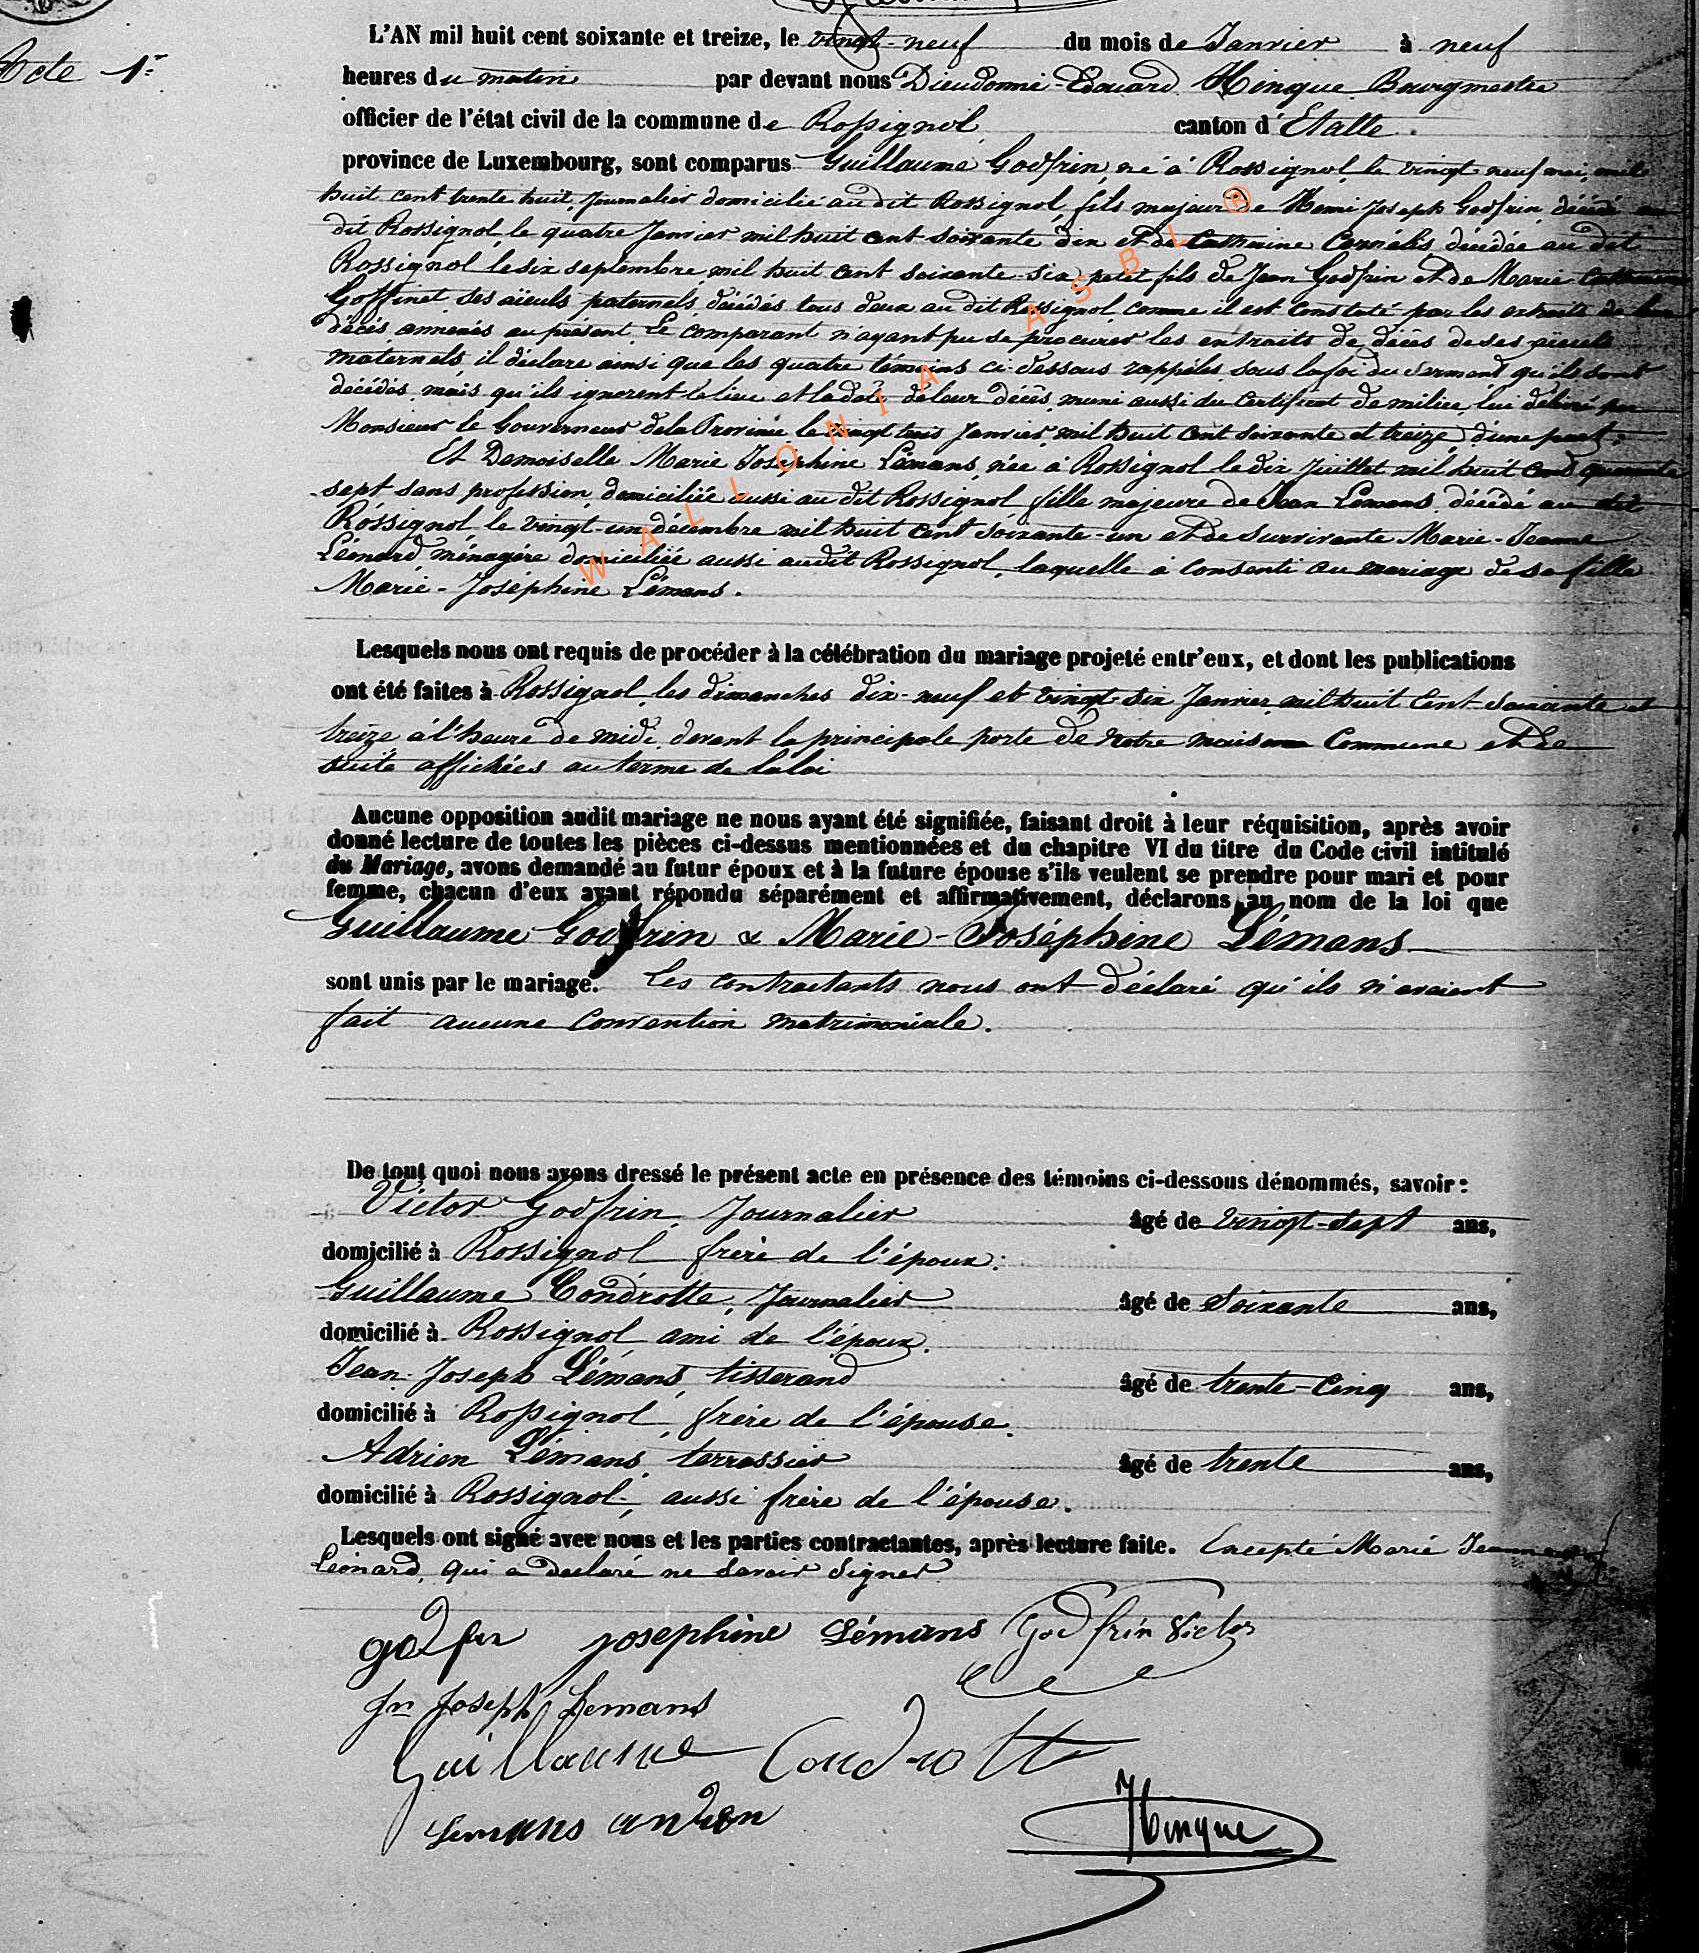 Acte 1er
L'AN mil huit cent soixante et treize, le vingt-neuf du mois de Janvier à neuf
heures du matin par devant nous Dieudonné-Edouard Hinque Bourgmestre
officier de l'état civil de la commune de Rossignol canton d'Etalle.
province de Luxembourg, sont comparus Guillaume Godfrin, né à Rossignol, le vingt neuf mai, mil
huit cent trente huit, Journalier domicilié au dit Rossignol, fils majeur de Henri Joseph Godfrin, décédé au
dit Rossignol, le quatre Janvier mil huit cent soixante dix et de Catherine Cornélis décédée au dit
Rossignol le six septembre mil huit cent soixante-six, petit fils de Jean Godfrin et de Marie-Catherine
Goffinet ses aïeuls paternels, décédés tous deux au dit Rossignol, comme il est constaté par les extraits de leur
décès annexés au présent. Le comparant n'ayant pu se procurer les extraits de décès de ses aïeuls
maternels, il déclare ainsi que les quatre témoins ci-dessous rappelés, sous la foi du serment qu'ils sont
décédés, mais qu'ils ignorent le lieu et la date de leur décès, muni aussi du certificat de milice, lui délivré par
Monsieur le Gouverneur de la Province le vingt trois Janvier, mil huit cent soixante et treize, d'une part;
Et Demoiselle Marie Joséphine Lémans, née à Rossignol le dix Juillet mil huit cent quarante
sept sans profession, domiciliée aussi au dit Rossignol, fille majeure de Jean Lémans, décédé au dit
Rossignol, le vingt-un décembre mil huit cent soixante-un et de survivante Marie-Jeanne
Léonard, ménagère domiciliée aussi audit Rossignol, laquelle a consenti au mariage de sa fille
Marie-Joséphine Lémans.
Lesquels nous ont requis de procéder à la célébration du mariage projeté entr'eux, et dont les publications
ont été faites à Rossignol, les dimanches dix-neuf et vingt-six Janvier, mil huit cent soixante et
treize à l'heure de midi, devant la principale porte de notre maison Commune et de
suite affichées au terme de la loi
Aucune opposition audit mariage ne nous ayant été signifiée, faisant droit à leur réquisition, après avoir
donné lecture de toutes les pièces ci-dessus mentionnées et du chapitre VI du titre du Code civil intitulé
du Mariage, avons demandé au futur époux et à la future épouse s'ils veulent se prendre pour mari et pour
femme, chacun d'eux ayant répondu séparément et affirmativement, déclarons au nom de la loi que
Guillaume Godfrin & Marie-Joséphine Lémans
sont unis par le mariage. Les contractants nous ont déclaré qu'ils n'avaient
fait aucune Convention matrimoniale.
De tout quoi nous avons dressé le présent acte en présence des témoins ci-dessous dénommés, savoir :
Victor Godfrin, Journalier âgé de vingt-sept ans,
domicilié à Rossignol frère de l'époux.
Guillaume Condrotte, Journalier âgé de soixante ans,
domicilié à Rossignol ami de l'époux.
Jean-Joseph Lémans, tisserand âgé de trente-cinq ans,
domicilié à Rossignol, frère de l'épouse.
Adrien Lémans, terrassier âgé de trente ans,
domicilié à Rossignol, aussi frère de l'épouse.
Lesquels ont signé avec nous et les parties contractantes, après lecture faite. Excepté Marie Jeanne
Léonard, qui a déclaré ne savoir signer
godfrin josephine Lémans Godfrin Victor
Jn Joseph Lemans
Guillaume Condrotte
Lemans andrien Hinque
WALLONIA ASBL ®